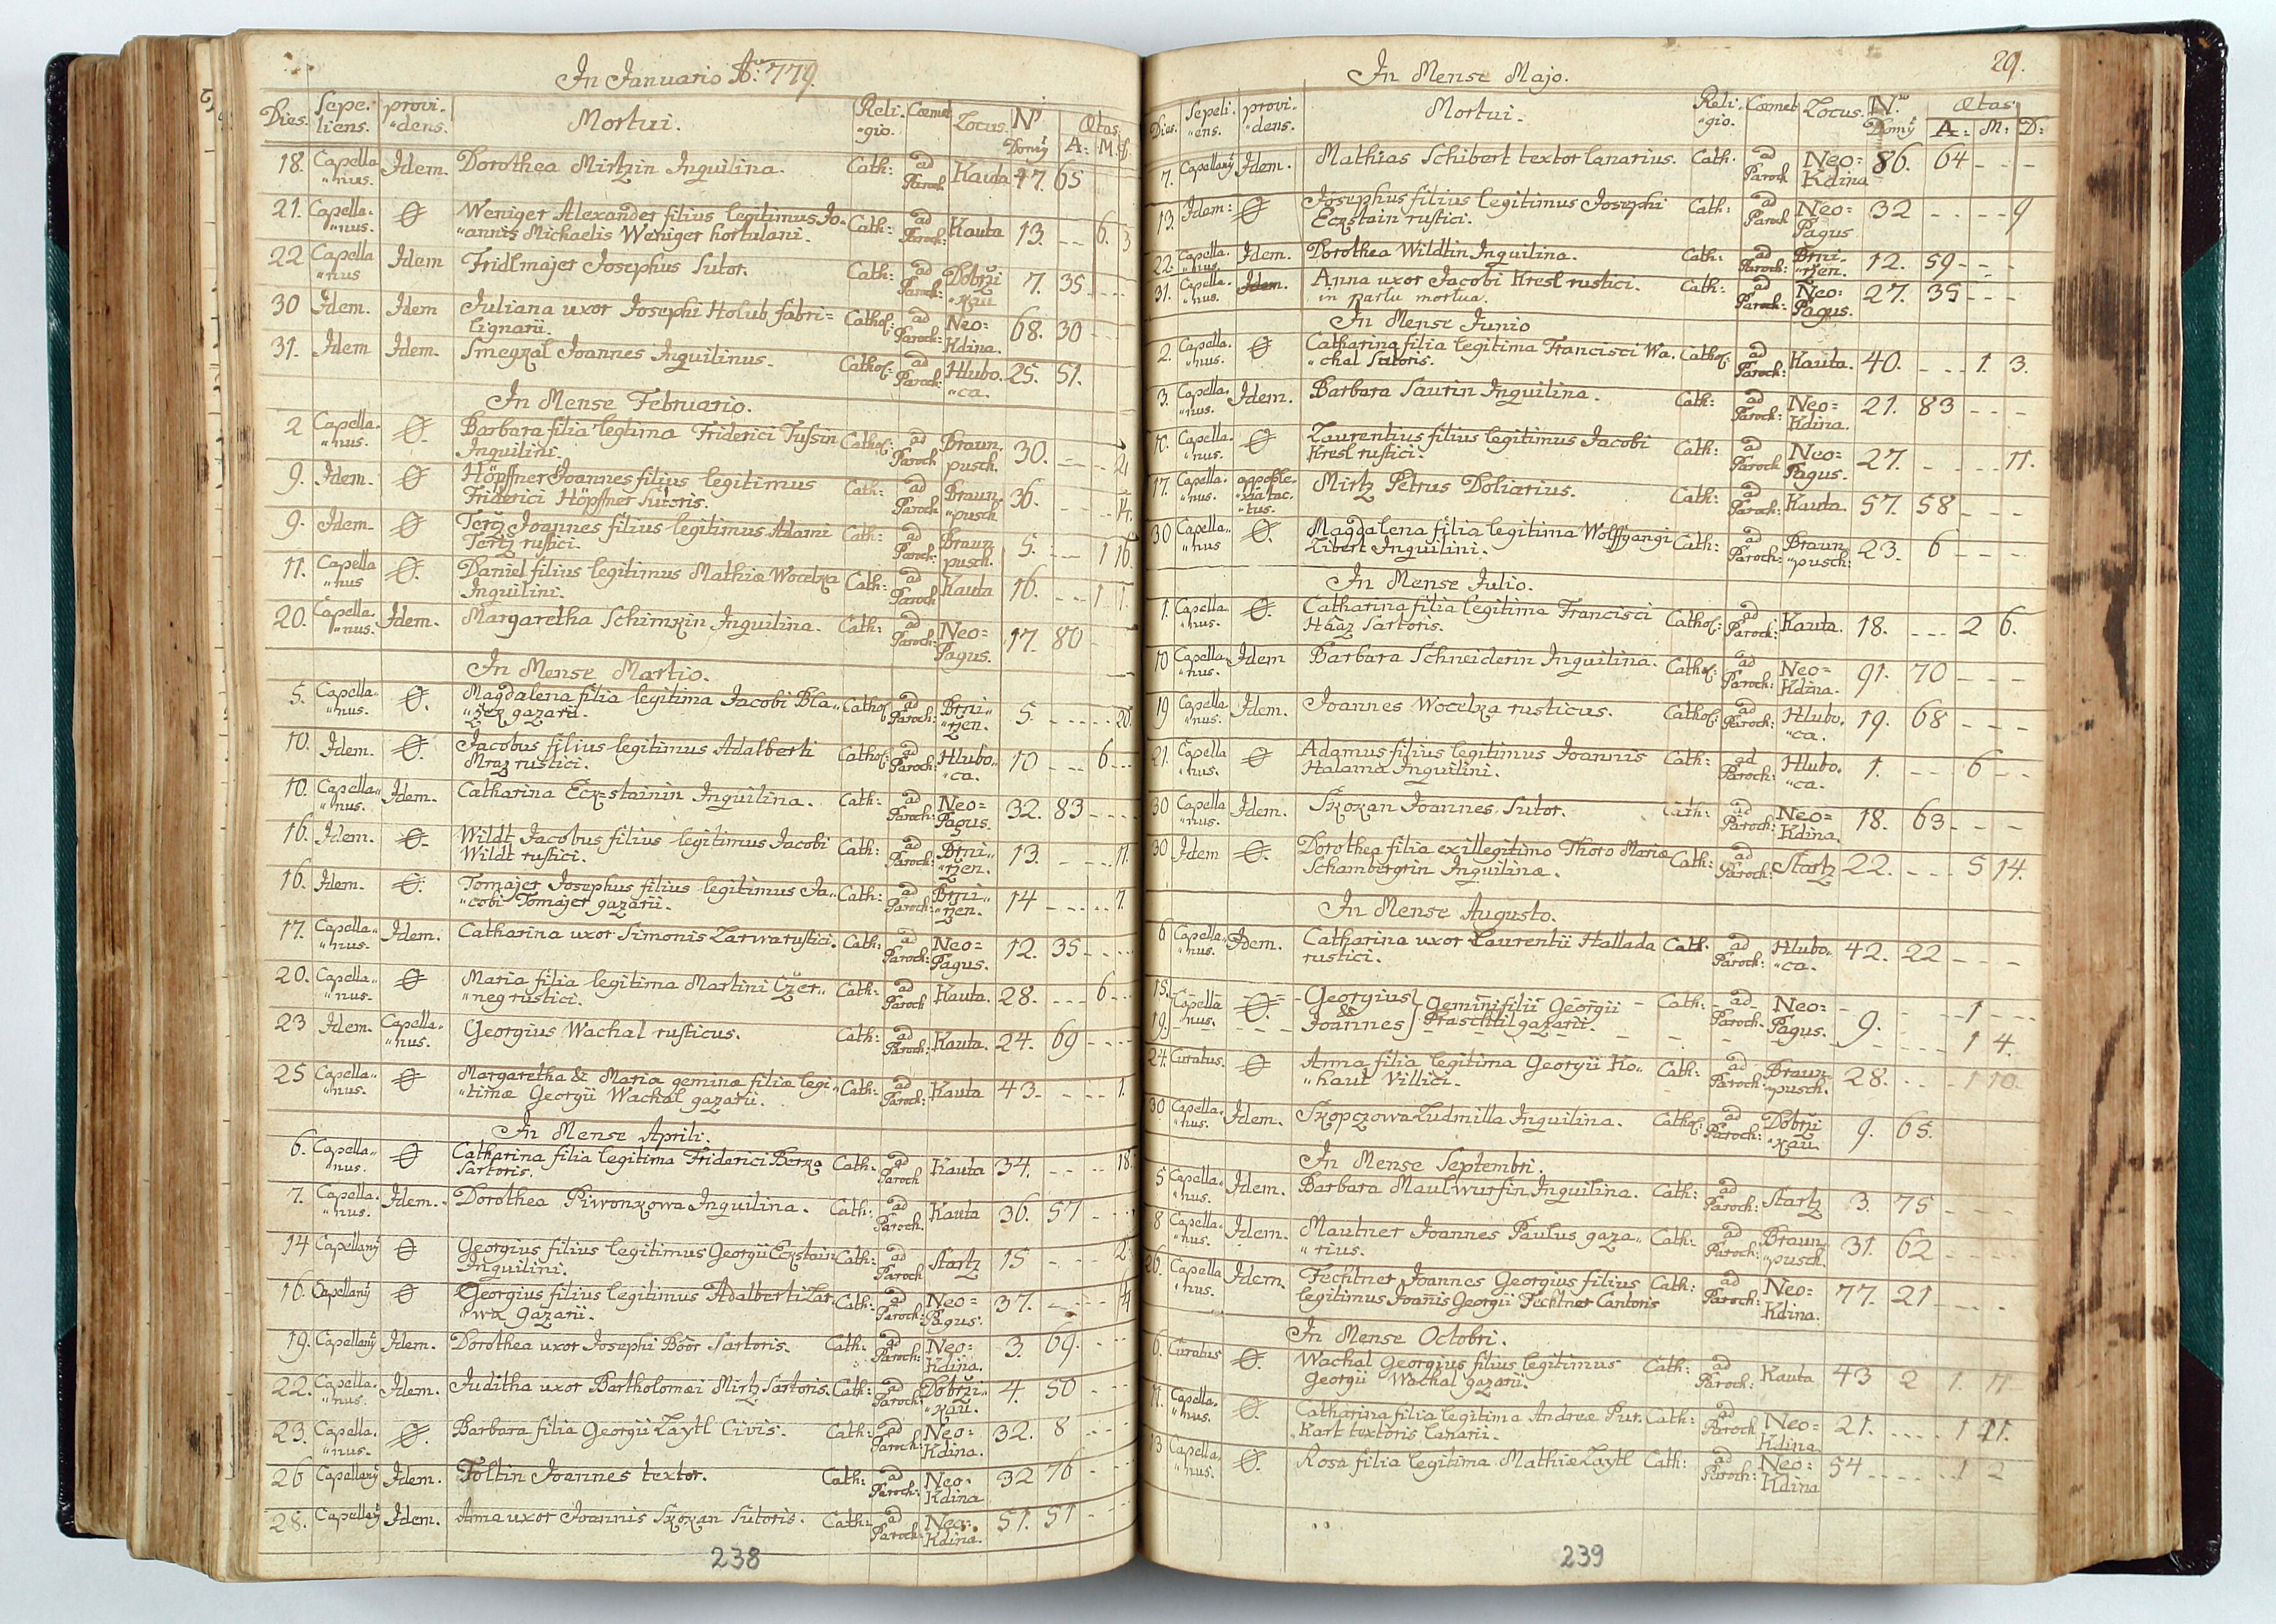 In Januario Ao: 779.
Dies. Sepe- liens. provi- "dens. Mortui. Reli- "gio. Cœmet Locus. No Domy Ætas A: M: D:
18. Capella "nus. Idem. Dorothea Mirtzin Inquilina. Cath: ad Paroch Kauta 47. 65
21. Capella- "nus. Ø Weniger Alexander filius legitimus Jo- "annis Michaelis Weniger hortulani. Cath: ad Paroch: Kauta 13. -- 6. 3
22 Capella "nus Idem Fridlmajer Josephus Sutor. Cath: ad Paroch: Dobrži "kau 7. 35
30 Idem. Idem Juliana uxor Josephi Holub fabri= lignarii. Cathol: ad Paroch: Neo= Kdina. 68. 30
31. Idem Idem. Smegkal Joannes Inquilinus. Cathol: ad Paroch: Hlubo- "ca. 25. 51.
In Mense Februario.
2 Capella- "nus. Ø. Barbara filia legtima Friderici Tussin Inquilini. Cathol: ad Paroch Braun pusch. 30.
9. Idem. Ø Höpffner Joannes filius legitimus Friderici Höpffner Sutoris. Cath: ad Paroch Braun "pusch 36. 14.
9. Idem- Ø Tertz Joannes filius legitimus Adami Tertz rustici. Cath: ad Paroch: Braun pusch. 5. -- 1 16
11. Capella "nus Ø. Daniel filius legitimus Mathiæ Wocelka Inquilini. Cath: ad Paroch Kauta 16. -- 1 1.
20. Capella- "nus. Idem. Margaretha Schimkin Inquilina. Cath: ad Paroch: Neo= Pagus. 17. 80
In Mense Martio.
5. Capella- "nus. Ø. Magdalena filia legitima Jacobi Bla- "žek gazarii. Cathol ad Paroch: Brni- "ržen. 5. 20.
10. Idem. Ø. Jacobus filius legitimus Adalberti Mraz rustici. Cathol: ad Paroch: Hlubo- "ca. 10 -- 6
10. Capella- "nus. Idem. Catharina Eck=stainin Inquilina. Cath: ad Paroch: Neo= Pagus. 32. 83
16. Idem. Ø- Wildt Jacobus filius legitimus Jacobi Wildt rustici. Cath: ad Paroch: Brni- "ržen. 13. 11.
16. Idem. Ø. Tomajer Josephus filius legitimus Ja- "cobi Tomajer gazarii. Cath: ad Paroch: Brni- "ržen. 14 7.
17. Capella- "nus- Idem. Catharina uxor Simonis Larwa rustici. Cath: ad Paroch: Neo= Pagus. 12. 35
20. Capella- "nus- Ø Maria filia legitima Martini Czer- "neg rustici. Cath: ad Paroch Kauta. 28. --- 6
23 Idem. Capella- "nus. Georgius Wachal rusticus. Cath: ad Paroch: Kauta. 24. 69
25 Capella- "nus. Ø Margaretha & Maria geminæ filiæ legi- "timæ Georgii Wachal gazarii. Cath: ad Paroch: Kauta 43- 1.
In Mense Aprili.
6. Capella- "nus. Ø Catharina filia legitima Friderici Berka Sartoris. Cath: ad Paroch Kauta 34. 18.
7. Capella- "nus. Idem. Dorothea Piwonkowa Inquilina. Cath: ad Paroch. Kauta 36. 57
14 Capellanỹ Ø Georgius filius legitimus Georgii Eckstain Inquilini. Cath: ad Paroch Startz 15 2
16. Capellanỹ Ø Georgius filius legitimus Adalberti Lar- "wa gazarii. Cath: ad Paroch: Neo= Pagus. 37. 4
19. Capellanỹ Idem. Dorothea uxor Josephi Böör Sartoris. Cath: ad Paroch: Neo= Kdina. 3. 69.
22. Capella- "nus. Idem. Juditha uxor Bartholomæi Mirtz Sartoris. Cath: ad Paroch: Dobrži- "kau. 4. 50
23. Capella- "nus. Ø. Barbara filia Georgii Laytl Civis. Cath: ad Paroch: Neo= Kdina. 32. 8
26 Capellanỹ Idem. Foltin Joannes textor. Cath: ad Paroch: Neo= Kdina 32 76
28. Capellaỹ Idem. Anna uxor Joannis Skokan Sutoris. Cath: ad Paroch: Neo= Kdina. 51. 51
238
In Mense Majo. 29.
Dies. Sepeli- "ens. provi- "dens. Mortui. Reli- "gio. Cœmet Locus. No Domỹ Ætas A: M: D:
7. Capellanỹ Idem. Mathias Schibert textor lanarius. Cath. ad Paroch Neo= Kdina 86. 64
13. Idem: Ø Josephus filius legitimus Josephi Eckstain rustici. Cath: ad Paroch Neo= Pagus 32 9
22 Capella- "nus. Idem. Dorothea Wildtin Inquilina. Cath: ad Paroch: Brni- "ržen. 12. 59
31. Capella- "nus. Idem. Anna uxor Jacobi Kresl rustici. in partu mortua. Cath: ad Paroch: Neo= Pagus. 27. 35
In Mense Junio
2. Capella- "nus. Ø Catharina filia legitima Francisci Wa- "chal Sutoris. Cathol: ad Paroch: Kauta. 40. --- 1. 3.
3. Capella- "nus. Idem. Barbara Saurin Inquilina. Cath: ad Paroch: Neo= Kdina. 21. 83
10. Capella- "nus. Ø Laurentius filius legitimus Jacobi Kresl rustici. Cath: ad Paroch Neo= Pagus. 27. 11.
17. Capella- "nus. appople- "xia tac- "tus. Mirtz Petrus Doliarius. Cath: ad Paroch: Kauta. 57. 58
30 Capella- "nus Ø. Magdalena filia legitima Wolffgangi Libert Inquilini. Cath: ad Paroch: Braun "pusch: 23. 6
In Mense Julio.
1. Capella- "nus. Ø. Catharina filia legitima Francisci Haaz Sartoris. Cathol: ad Paroch: Kauta. 18. --- 2 6.
10 Capella- "nus. Idem Barbara Schneiderin Inquilina. Cathol: ad Paroch: Neo= Kdina. 91. 70
19 Capella "nus. Idem. Joannes Wocelka rusticus. Cathol: ad Paroch: Hlubo- "ca. 19. 68
21. Capella "nus. Ø Adamus filius legitimus Joannis Halama Inquilini. Cath: ad Paroch: Hlubo- "ca. 1. -- 6
30 Capella "nus. Idem. Skokan Joannes Sutor. Cath: ad Paroch: Neo= Kdina. 18. 63
30 Idem Ø. Dorothea filia ex illegitimo Thoro Mariæ Schambergrin Inquilinæ. Cath: ad Paroch: Startz 22. --- 5 14.
In Mense Augusto.
6 Capella- "nus. Idem. Catharina uxor Laurentii Hallada rustici. Cath. ad Paroch: Hlubo- "ca. 42. 22
15. 19. Capella "nus. Ø Georgius & Joannes } Gemini filii Georgii Praschtil gazarii. Cath: ad Paroch. Neo= Pagus. 9. 1 1 4.
24. Curatus. Ø Anna filia legitima Georgii Ko- "haut Villici. Cath: ad Paroch: Braun "pusch. 28. 1 10.
30 Capella- "nus. Idem. Skopczowa Ludmilla Inquilina. Cathol: ad Paroch: Dobrži "kau 9. 65.
In Mense Septembri.
5 Capella- "nus. Idem. Barbara Maulwurfin Inquilina. Cath: ad Paroch: Startz 3. 75
8 Capella- "nus. Idem. Mautner Joannes Paulus gaza- "rius. Cath: ad Paroch: Braun- "pusch 31. 62
26. Capella "nus. Idem. Fechtner Joannes Georgius filius legitimus Joanis Georgii Fechtner Cantoris Cath: ad Paroch: Neo= Kdina. 77. 21
In Mense Octobri.
6. Curatus Ø. Wachal Georgius filius legitimus Georgii Wachal gazarii. Cath: ad Paroch: Kauta 43 2 1. 11
11. Capella- "nus. Ø. Catharina filia legitima Andreæ Pur- "kart textoris lanarii. Cath: ad Paroch Neo= Kdina 21. 1 21.
13 Capella- "nus. Ø. Rosa filia legitima Mathiæ Laytl Cath: ad Paroch: Neo= Kdina 54 1 2
239